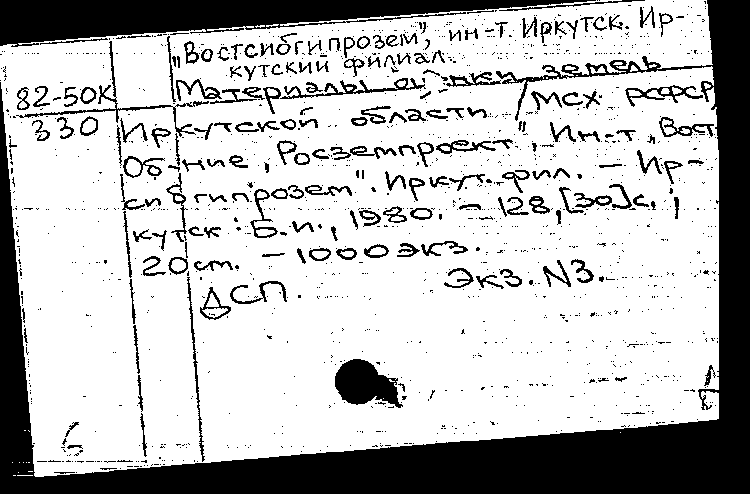 "Востсибгипрозем", ин-т. Иркутск. Ир-
кутский филиал.
82-50К Материалы оценки земель
330 Иркутской области / МСХ РСФСР,
Об-ние „Росземпроект", Ин-т „Вост
сибгипрозем". Иркут. фил. – Ир-
кутск : Б.и., 1980. – 128, [30] с. ;
20 см. – 1000 экз.
ДСП. Экз. N3.
6